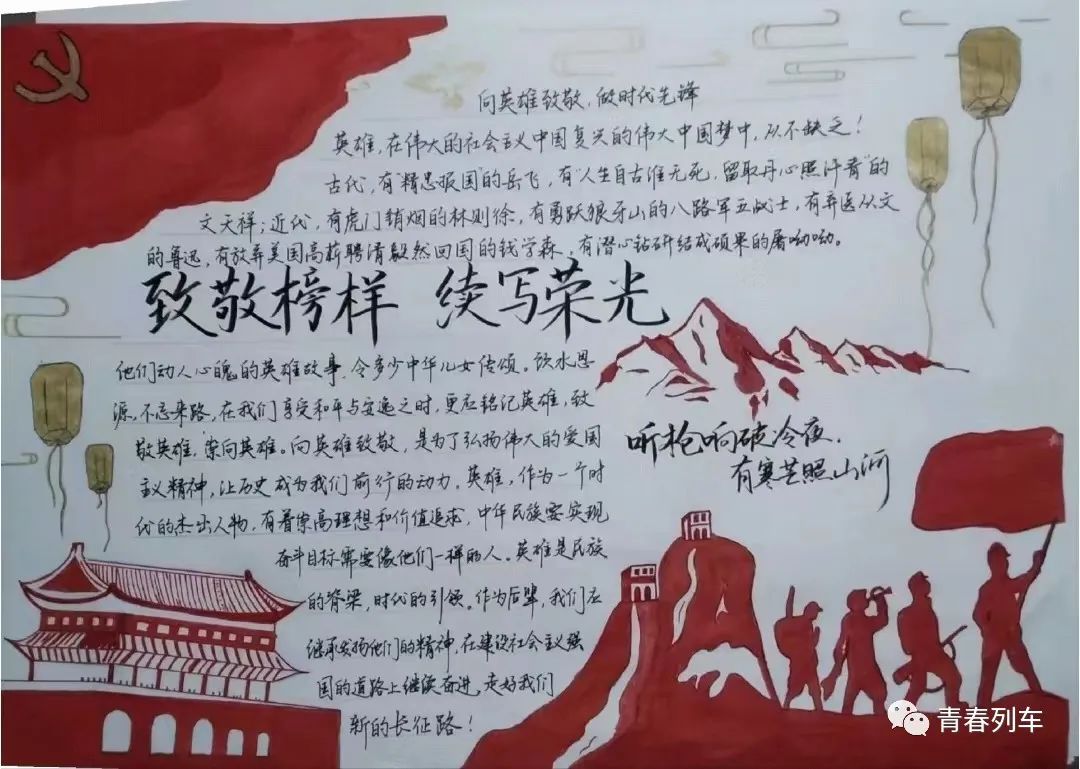 向英雄致敬，做时代先锋
英雄，在伟大的社会主义中国复兴的伟大中国梦中，从不缺乏！
古代，有"精忠报国"的岳飞，有"人生自古谁无死，留取丹心照汗青"的
文天祥；近代，有虎门销烟的林则徐，有勇跃狼牙山的八路军五战士，有弃医从文
的鲁迅，有放弃美国高薪聘请毅然回国的钱学森，有潜心钻研结成硕果的屠呦呦。
致敬榜样 续写荣光
他们动人心魄的英雄故事，令多少中华儿女传颂。饮水思
源，不忘来路，在我们享受和平与安逸之时，更应铭记英雄，致
敬英雄，崇向英雄。向英雄致敬，是为了弘扬伟大的爱国
主义精神，让历史成为我们前行的动力。英雄，作为一个时
代的杰出人物，有着崇高理想和价值追求，中华民族要实现
奋斗目标需要像他们一样的人。英雄是民族
的脊梁，时代的引领。作为后辈，我们应
继承发扬他们的精神，在建设社会主义强
国的道路上继续奋进，走好我们
新的长征路！
听枪响破冷夜，
有寒芒照山河
青春列车